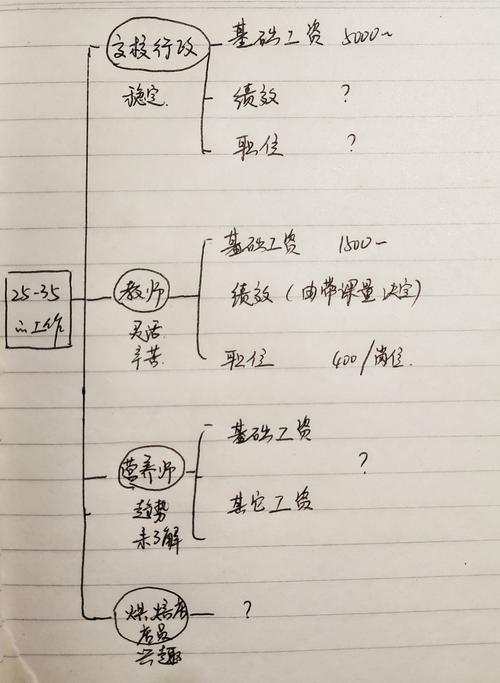 文校行政
基础工资 5000~
稳定
绩效 ?
职位 ?
25-35
的工作
教师
灵活
辛苦
基础工资 1500~
绩效(由带课量决定)
职位 400/岗位
营养师
趋势
未了解
基础工资
?
其它工资
烘焙店
店员
兴趣
?